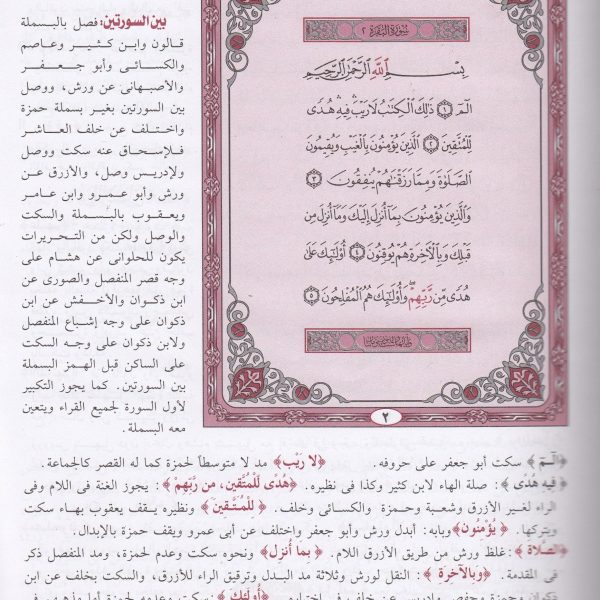 بين السورتين: فصل بالبسملة
قالون وابن كثير وعاصم
والكسائى وأبو جعفر
والأصبهانى عن ورش، ووصل
بين السورتين بغير بسملة حمزة
واختلف عن خلف العاشر
فلإسحاق عنه سكت ووصل
ولإدريس وصل، والأزرق عن
ورش وأبو عمرو وابن عامر
ويعقوب بالبسملة والسكت
والوصل ولكن من التحريرات
يكون للحلوانى عن هشام على
وجه قصر المنفصل والصورى عن
ابن ذكوان والأخفش عن ابن
ذكوان على وجه إشباع المنفصل
ولابن ذكوان على وجه السكت
على الساكن قبل الهمز البسملة
بين السورتين. كما يجوز التكبير
لأول السورة لجميع القراء ويتعين
معه البسملة.
سورة البقرة ٢
بسم الله الرحمن الرحيم
الٓمٓ ١ ذَٰلِكَ ٱلْكِتَٰبُ لَا رَيْبَ ۛ فِيهِ ۛ هُدًى
لِّلْمُتَّقِينَ ٢ ٱلَّذِينَ يُؤْمِنُونَ بِٱلْغَيْبِ وَيُقِيمُونَ
ٱلصَّلَوٰةَ وَمِمَّا رَزَقْنَٰهُمْ يُنفِقُونَ ٣
وَٱلَّذِينَ يُؤْمِنُونَ بِمَآ أُنزِلَ إِلَيْكَ وَمَآ أُنزِلَ مِن
قَبْلِكَ وَبِٱلْأَخِرَةِ هُمْ يُوقِنُونَ ٤ أُو۟لَٰٓئِكَ عَلَىٰ
هُدًى مِّن رَّبِّهِمْ ۖ وَأُو۟لَٰٓئِكَ هُمُ ٱلْمُفْلِحُونَ ٥
٢
﴿الٓمٓ﴾ سكت أبو جعفر على حروفه. ﴿لا رَيْبَ﴾ مد لا متوسطاً لحمزة كما له القصر كالجماعة.
﴿فِيهِ هُدًى﴾: صلة الهاء لابن كثير وكذا فى نظيره. ﴿هُدًى لِّلْمُتَّقِين، مِن رَّبِّهِمْ﴾: يجوز الغنة فى اللام وفى
الراء لغير الأزرق وشعبة وحمزة والكسائى وخلف. ﴿لِلْمُتَّقِينَ﴾ ونظيره يقف يعقوب بهاء سكت
وبتركها. ﴿يُؤْمِنُونَ﴾ وبابه: أبدل ورش وأبو جعفر واختلف عن أبى عمرو ويقف حمزة بالإبدال.
﴿الصَّلاةَ﴾: غلظ ورش من طريق الأزرق اللام. ﴿بِما أُنزِلَ﴾ ونحوه سكت وعدم لحمزة، ومد المنفصل ذكر
فى المقدمة. ﴿وبالآخرة﴾: النقل لورش وثلاثة مد البدل وترقيق الراء للأزرق، والسكت بخلف عن ابن